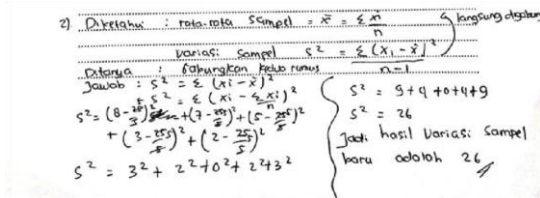 2) Diketahui : rata-rata sampel = x̄ = Σ xi / n
langsung digabung
Variasi sampel s² = Σ (xi - x̄)² / n-1
Ditanya : Gabungkan kedua rumus
Jawab : s² = Σ (xi - x̄)²
s² = Σ (xi - Σ xi / n)²
s² = (8 - 25/5)² + (7 - 25/5)² + (5 - 25/5)²
+ (3 - 25/5)² + (2 - 25/5)²
s² = 3² + 2² + 0² + 2² + 3²
s² = 9 + 4 + 0 + 4 + 9
s² = 26
Jadi hasil variasi sampel
baru adalah 26